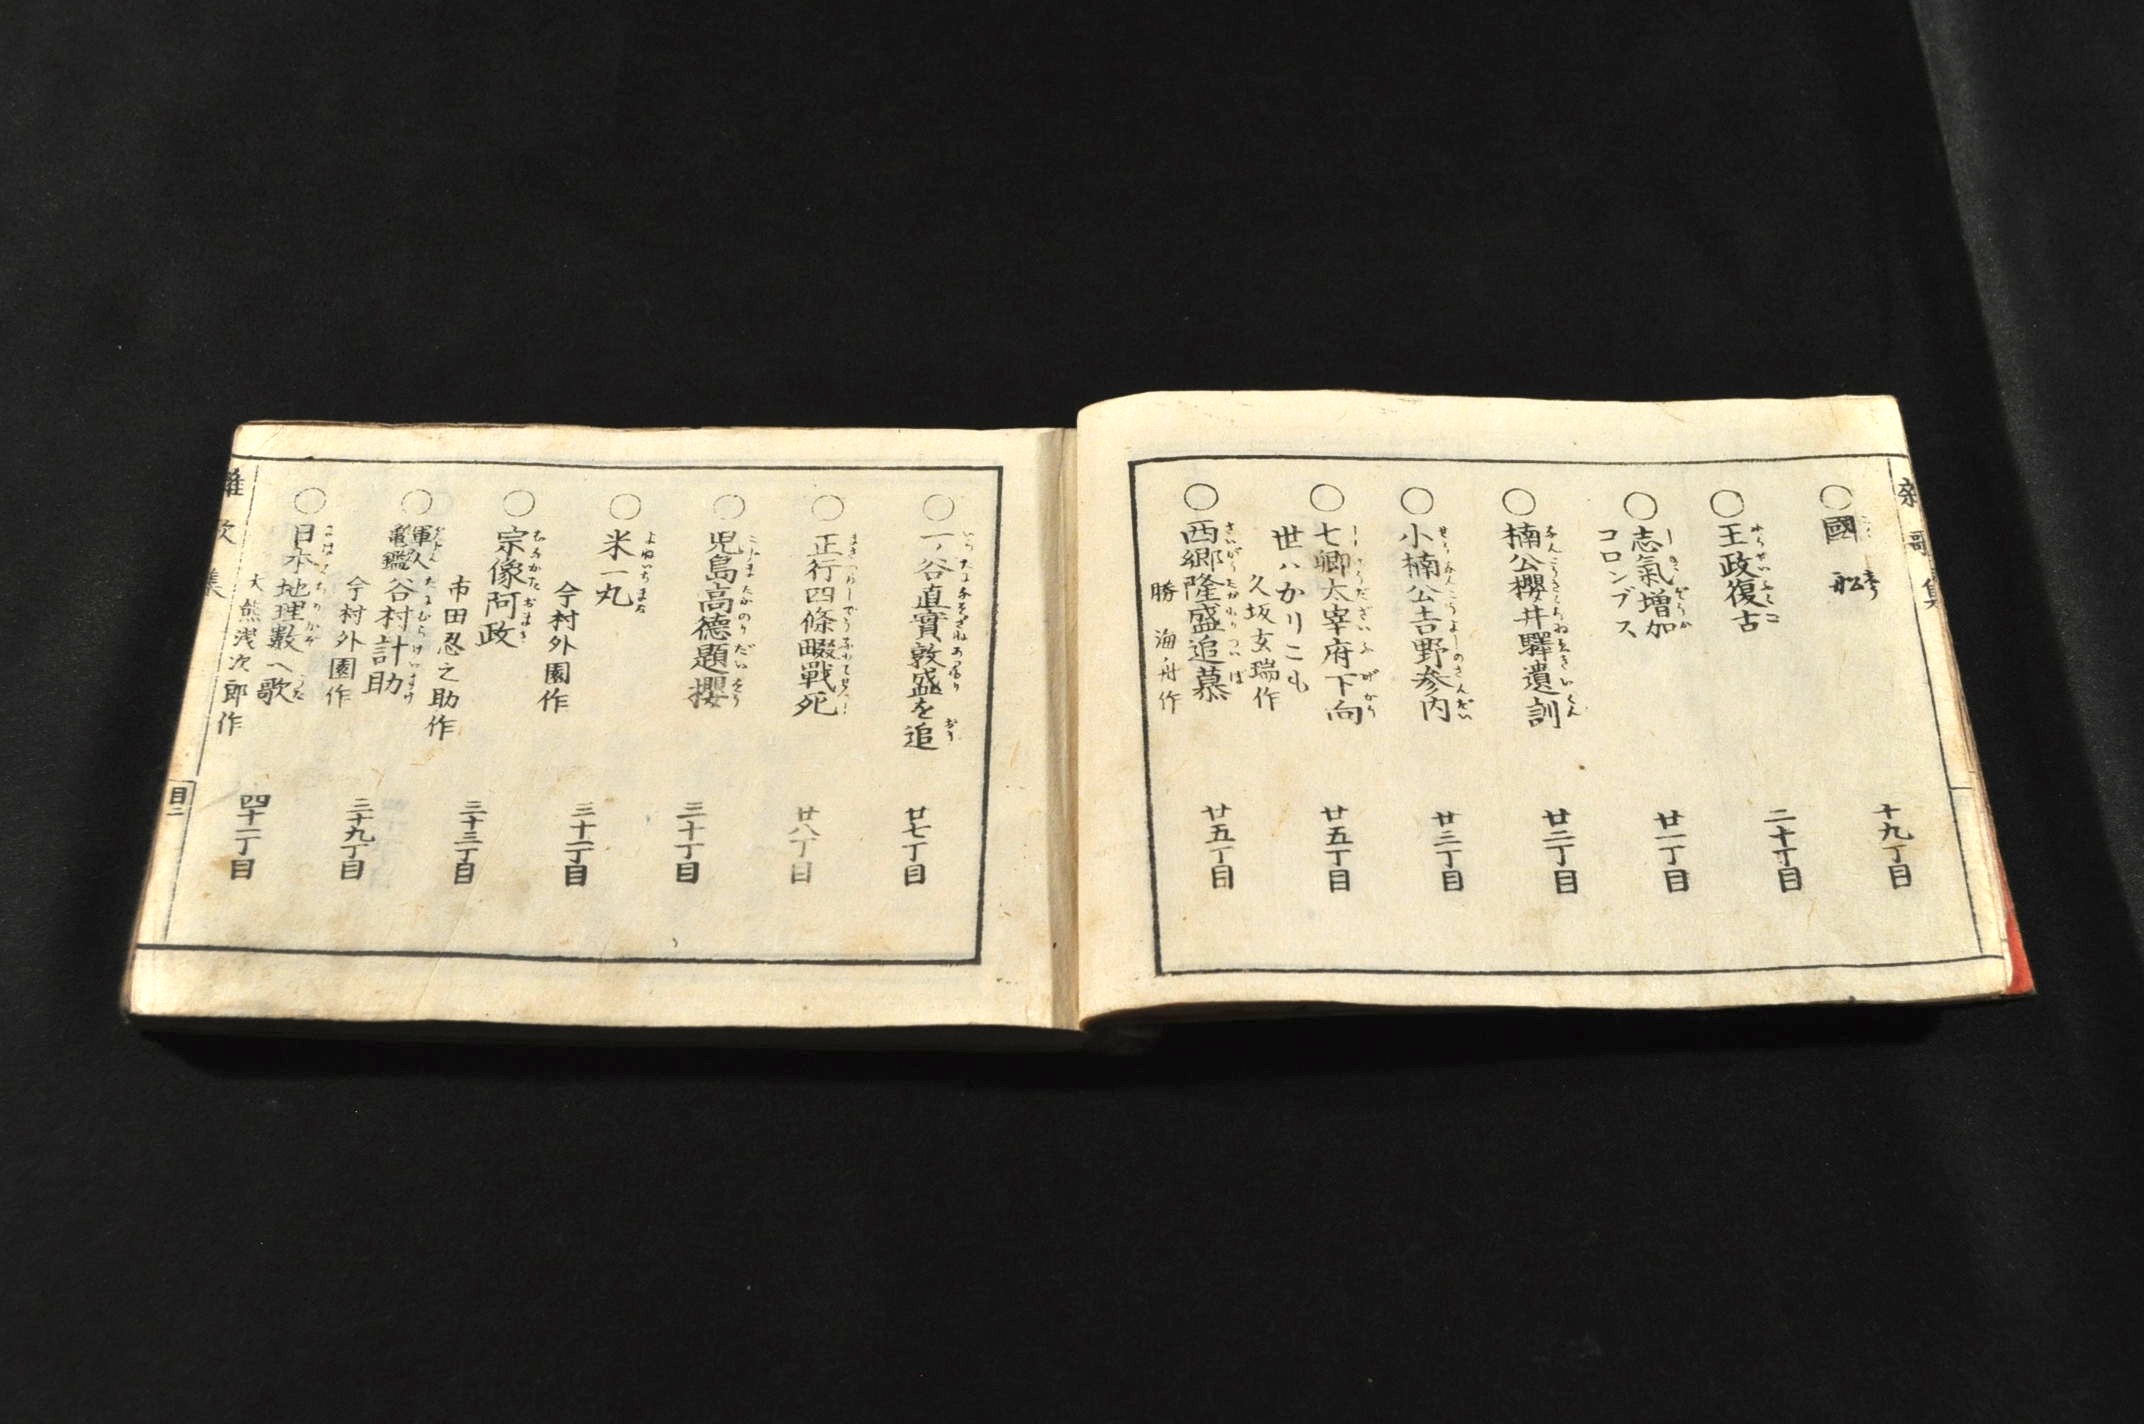 雑歌集
○國
十九丁目
○王政復古
二十丁目
○志氣増加
コロンブス
廿一丁目
○楠公櫻井驛遺訓
廿二丁目
○小楠公吉野参内
廿三丁目
○七卿太宰府下向
世ハかりこも
久坂玄瑞作
廿五丁目
○西郷隆盛追慕
勝海舟作
廿五丁目
○一ノ谷直實敦盛を追
廿七丁目
○正行四條畷戰死
廿八丁目
○児島高德題櫻
三十丁目
○米一丸
今村外園作
三十一丁目
○宗像阿政
市田忍之助作
三十三丁目
○軍人亀鑑谷村計助
今村外園作
三十九丁目
○日本地理數へ歌
次郎作
四十一丁目
雑歌集
目二